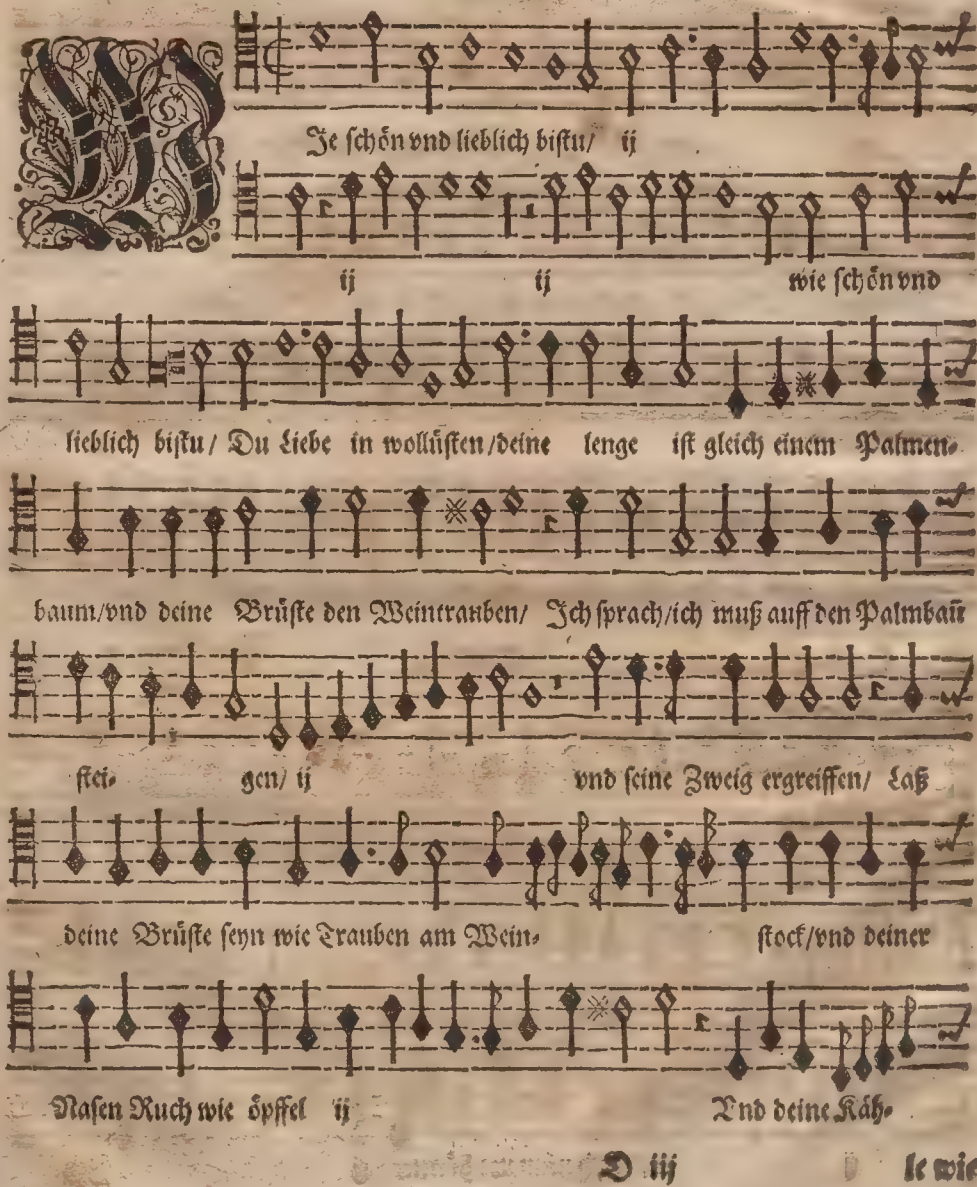 WJe schön vnd lieblich bistu/ ij
ij ij wie schön vnd
lieblich bistu/ Du Liebe in wollüsten/deine lenge ist gleich einem Palmen-
baum/vnd deine Brüste den Weintrauben/ Jch sprach/ich muß auff den Palmbaū
stei- gen/ ij vnd seine Zweig ergreiffen/ Laß
deine Brüste seyn wie Trauben am Wein- stock/vnd deiner
Nasen Ruch wie öpffel ij Vnd deine Käh-
D iij le wie